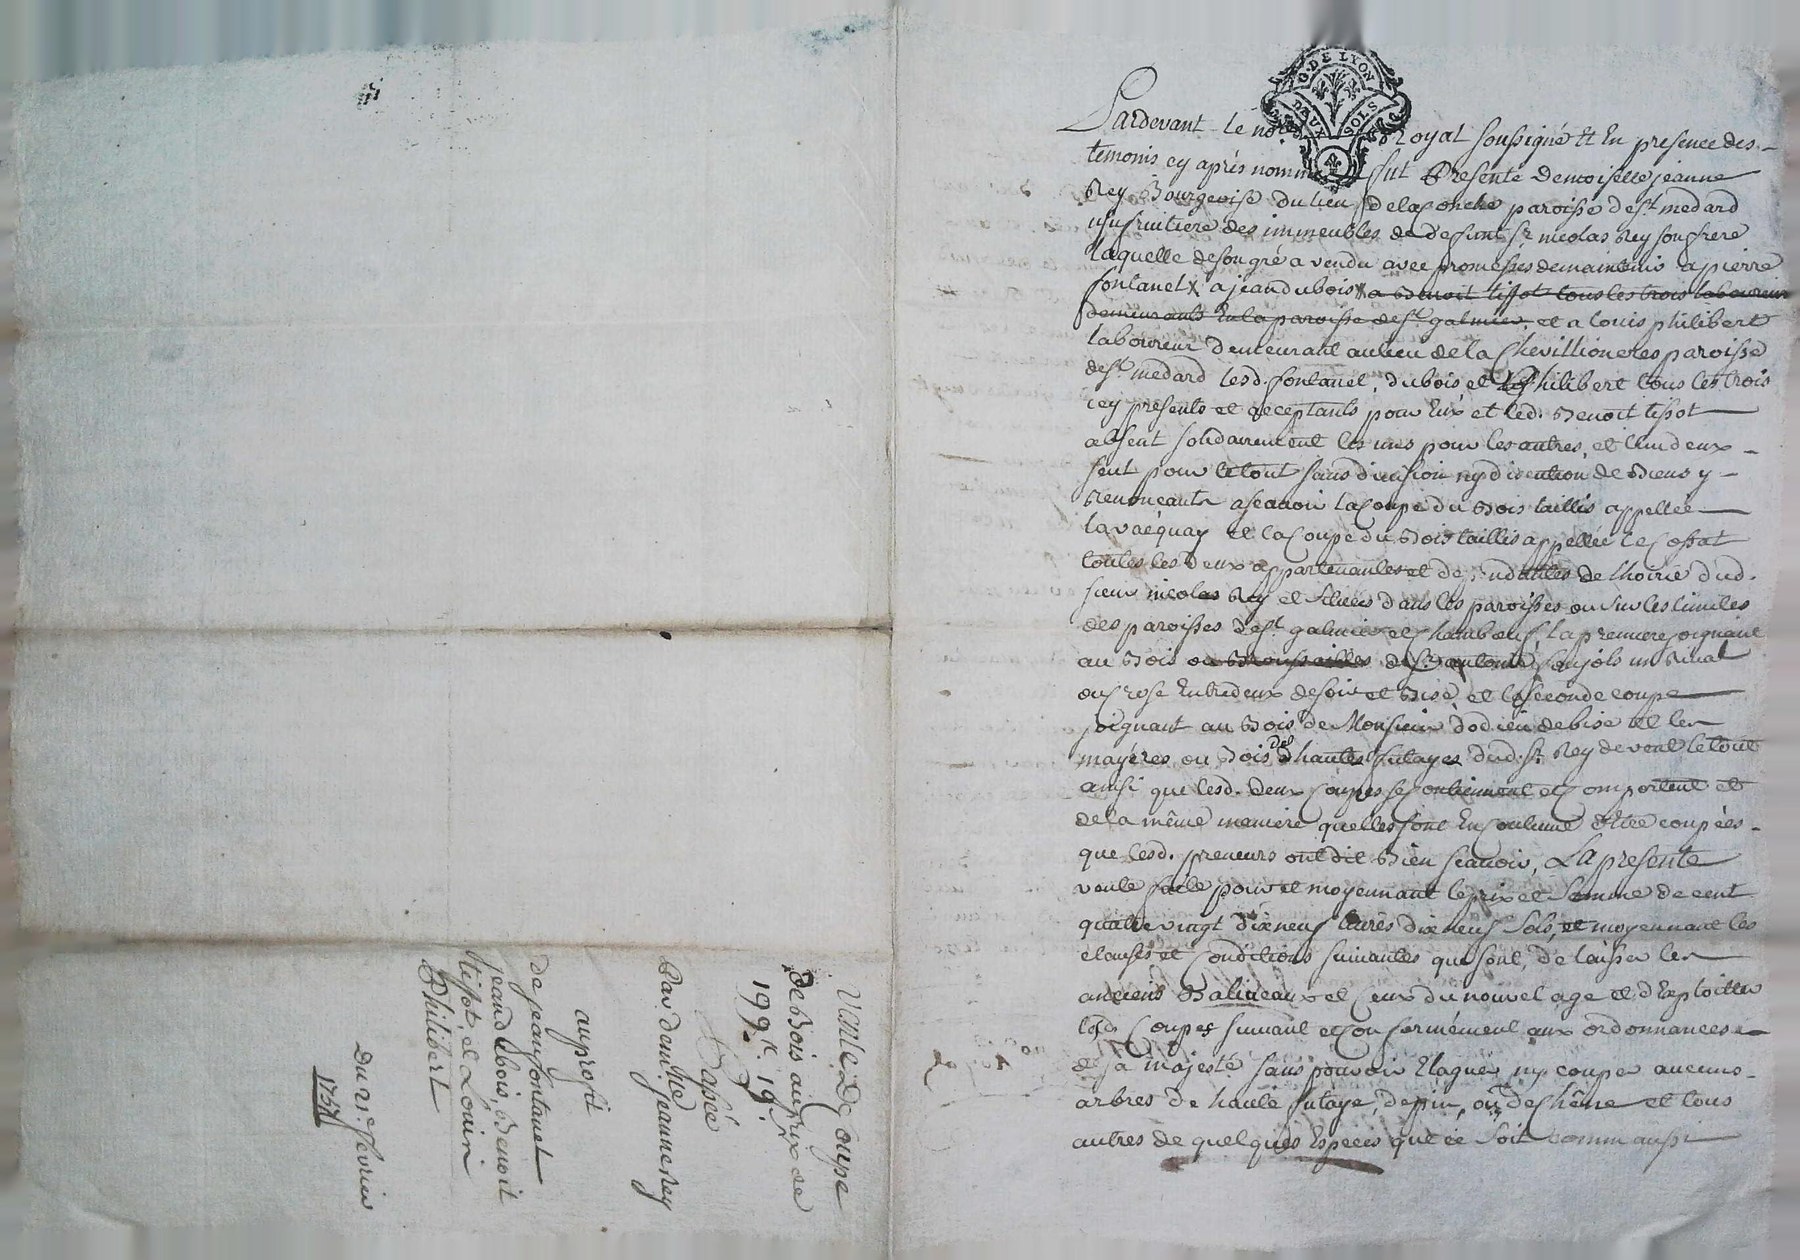 G. DE LYON
DEUX SOLS
Pardevant le no.re Royal soussigné Et En presence des
temonis cy aprés nommés fut Presente demoiselle jeanne
Rey Bourgeoise du lieu de la Conche paroisse de st. medard
usufruitiere des immeubles de deffunt sr. nicolas Rey son frere
laquelle de son gré a vendu avec promesses de maintenir a pierre
fontanel X a jean dubois X a Benoit tissot tous les trois laboureurs
demeurants En la paroisse de st. galmier, et a louis philibert
laboureur demeurant au lieu de la Chevillioneres paroisse
de st. medard lesd. fontanel, dubois et Philibert tous les trois
icy presents et acceptants pour Eux et led. Benoit tissot
absent solidairement les uns pour les autres, et l'un deux
seul pour le tout sans division ny discution de Biens y
Renonceants ascavoir la Coupe du Bois taillis appellée
la vacquay et la Coupe du Bois taillis appellée le Cossat
toutes les deux appartenantes et dependantes de lhoirie dud.
sieur nicolas Rey et situées dans les paroisses ou sur les limites
des paroisses de st. galmier et Chambœuf, la premiere joignant
au Bois ou Broussailles de sr. antoine un Rivat
ou Crose Entredeux de soir et Bise, et la seconde coupe
joignant au Bois de Monsieur dodieu de bise et les
mayeres ou Bois des hautes futayes dud. sr. Rey de vent le tout
ainsi que lesd. deux Coupes se contiennent et Comportent et
de la même maniere quelles sont En Coutume d'être coupées
que lesd. preneurs ont dit Bien scavoir, La presente
vente faite pour et moyennant le prix et Somme de cent
quatre vingt dix neuf livres dix neuf Sols, et moyennant les
clauses et Conditions suivantes qui sont, de laisser les
anciens Balineaux et Ceux du nouvel age et d'Exploitter
lesd. Coupes suivant et Conformément aux ordonnances
de sa majesté sans pouvoir Elaguer ny couper aucuns
arbres de haute futaye, de pin, ou de Chêne et tous
autres de quelques Especes que ce Soit comm'aussi
Vente De Coupe
de Bois au prix de
199.tt 19.s
Passée
Par. dem.lle jeanne Rey
au profit
de jean fontanel
jean dubois, Benoit
tissot, et Louis
Philibert
Du 21.e fevrier
1757